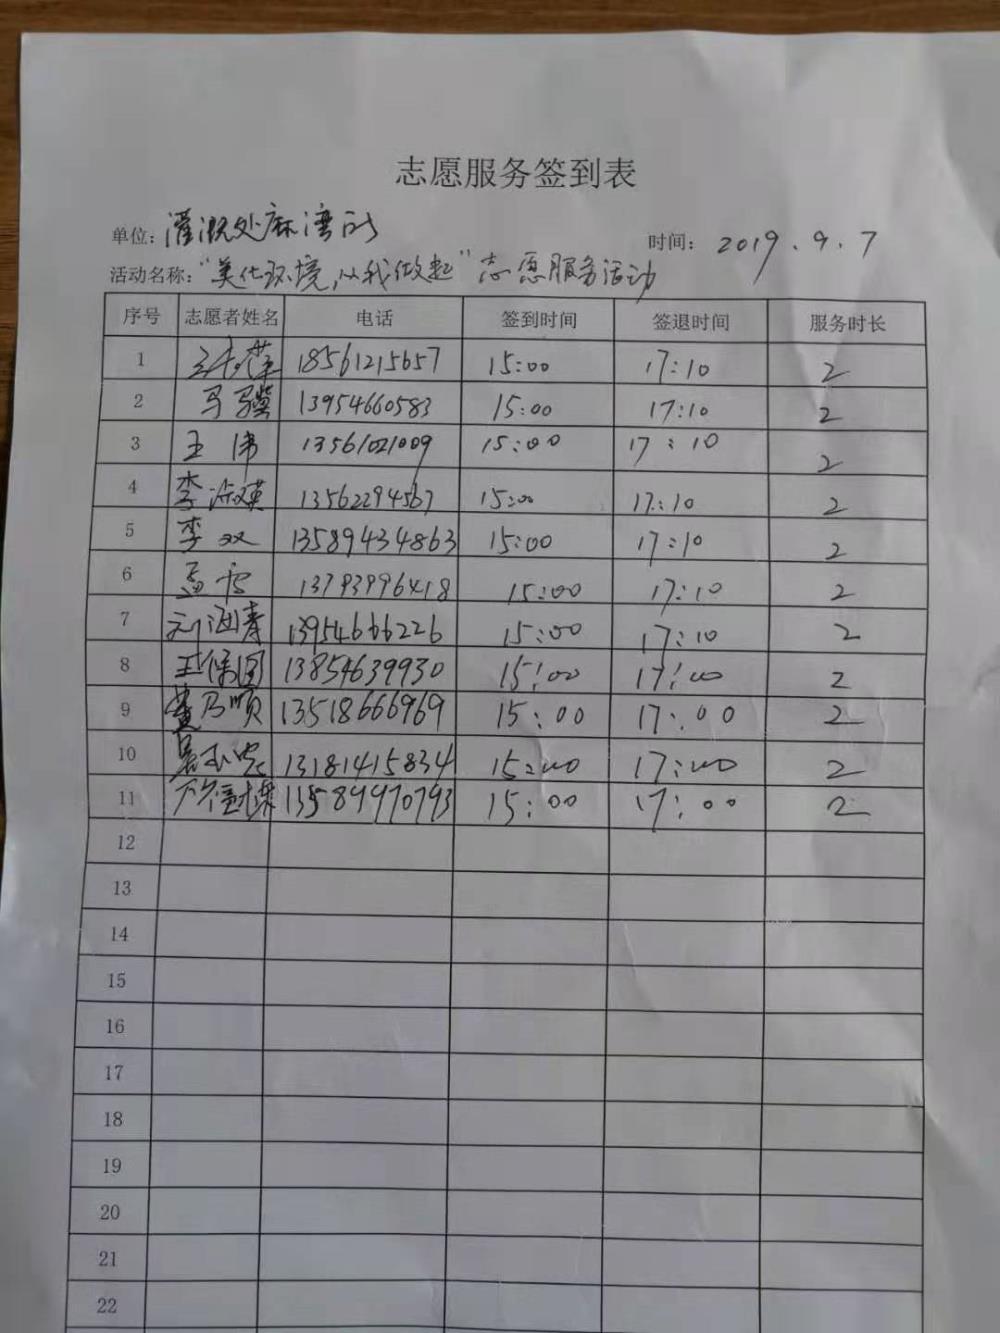 志愿服务签到表
单位：灌溉处麻湾所 时间：2019.9.7
活动名称："美化环境，从我做起"志愿服务活动
序号 志愿者姓名 电话 签到时间 签退时间 服务时长
1 18561215657 15:00 17:10 2
2 马骥 13954660583 15:00 17:10 2
3 王伟 13561021009 15:00 17:10 2
4 李淑英 13562294567 15:00 17:10 2
5 李双 13589434863 15:00 17:10 2
6 孟雪 13793996418 15:00 17:10 2
7 刘海涛 13954666226 15:00 17:10 2
8 王保国 13854639930 15:00 17:00 2
9 黄乃顺 13518666969 15:00 17:00 2
10 13181415834 15:00 17:00 2
11 13589970793 15:00 17:00 2
12
13
14
15
16
17
18
19
20
21
22